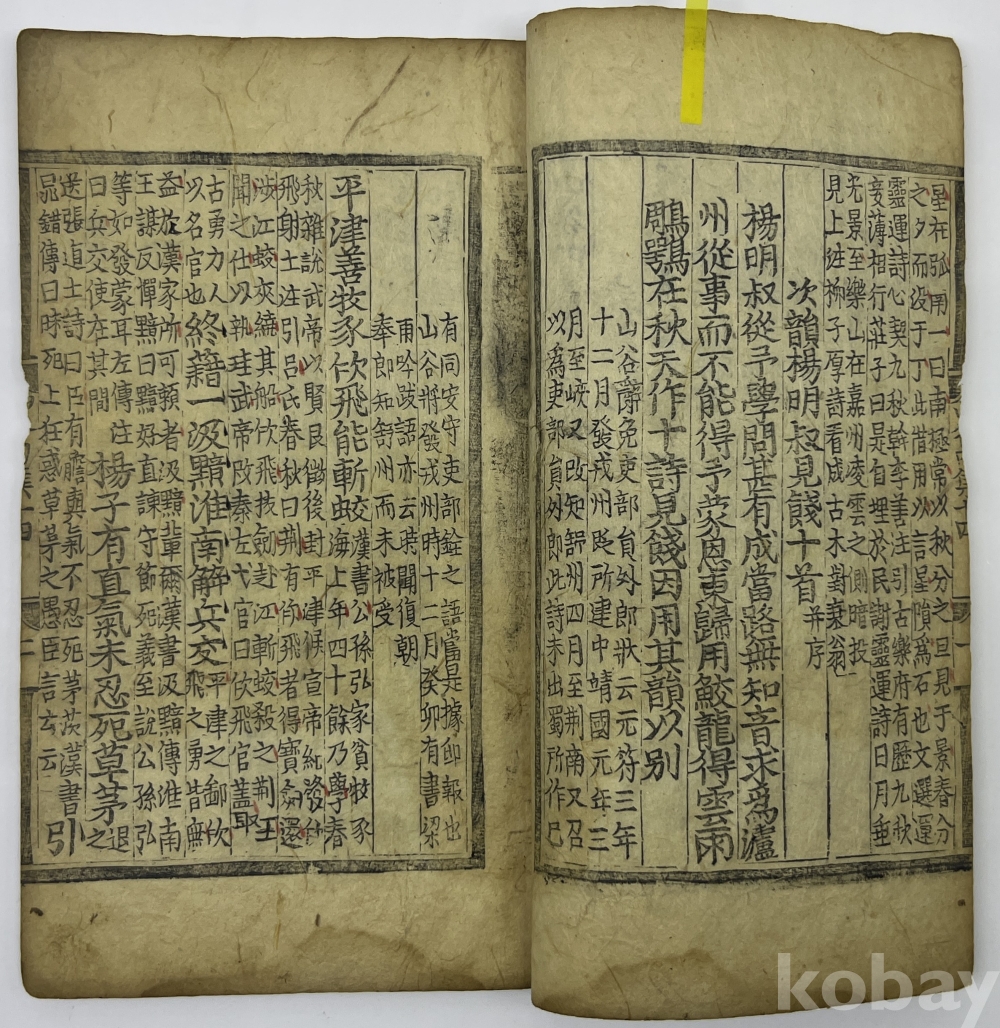 星在弧南一曰南極常以秋分之旦見于景春分
之夕而沒于丁此借用以言星隕爲石也文選還
靈運詩心契九秋幹李善注引古樂府有歷九秋
妾薄相行莊子曰是自埋於民謝靈運詩日月垂
光景至樂山在嘉州凌雲之側暗投
見上註柳子厚詩看成古木對衰翁
次韻楊明叔見餞十首 并序
楊明叔從予學問甚有成當路無知音求爲瀘
州從事而不能得予蒙恩東歸用蛟龍得雲雨
鵰鶚在秋天作十詩見餞因用其韻以別
山谷辭免吏部員外郎狀云元符三年
十二月發戎州貶所建中靖國元年三
月至峽又改知舒州四月至荆南又召
以爲吏部員外郎此詩未出蜀所作已
有同安守吏部銓之語當是據邸報出
山谷將發戎州時十二月癸卯有書梁
甫吟跋語亦云某聞復朝
奉郎知舒州而未被受
平津善牧豕佽飛能斬蛟 漢書公孫弘家貧牧豕
海上年四十餘乃學春
秋雜說武帝以賢良徵後封平津侯宣帝紀發佽
飛射士注引呂氏春秋曰荆有佽飛者得寶劍還
涉江蛟夾繞其船佽飛拔劍赴江斬蛟殺之荆王
聞之仕以執珪武帝改秦左弋官曰佽飛官蓋取
古勇力人
以名官也 終籍一汲黯淮南解兵交 平津之鄙佽
飛之勇皆無
益於漢家所可賴者汲黯輩爾漢書汲黯傳淮南
王謀反憚黯曰黯好直諫守節死義至說公孫弘
等如發蒙耳左傳注
曰兵交使在其間 楊子有直氣未忍死草茅 之退
送張道士詩曰臣有膽與氣不忍死茅茨漢書引
晁錯傳曰昧死上狂惑草茅之愚臣言云云
kobay